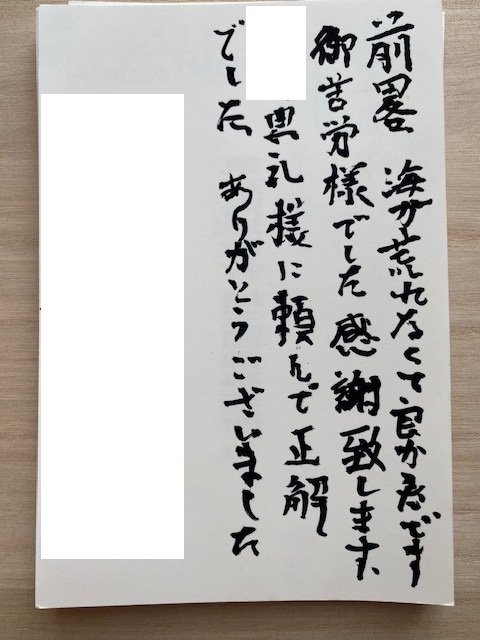 前畧 海が荒れなくて良かったです
御苦労様でした感謝致します、
典礼様に頼んで正解
でした ありがとうございました